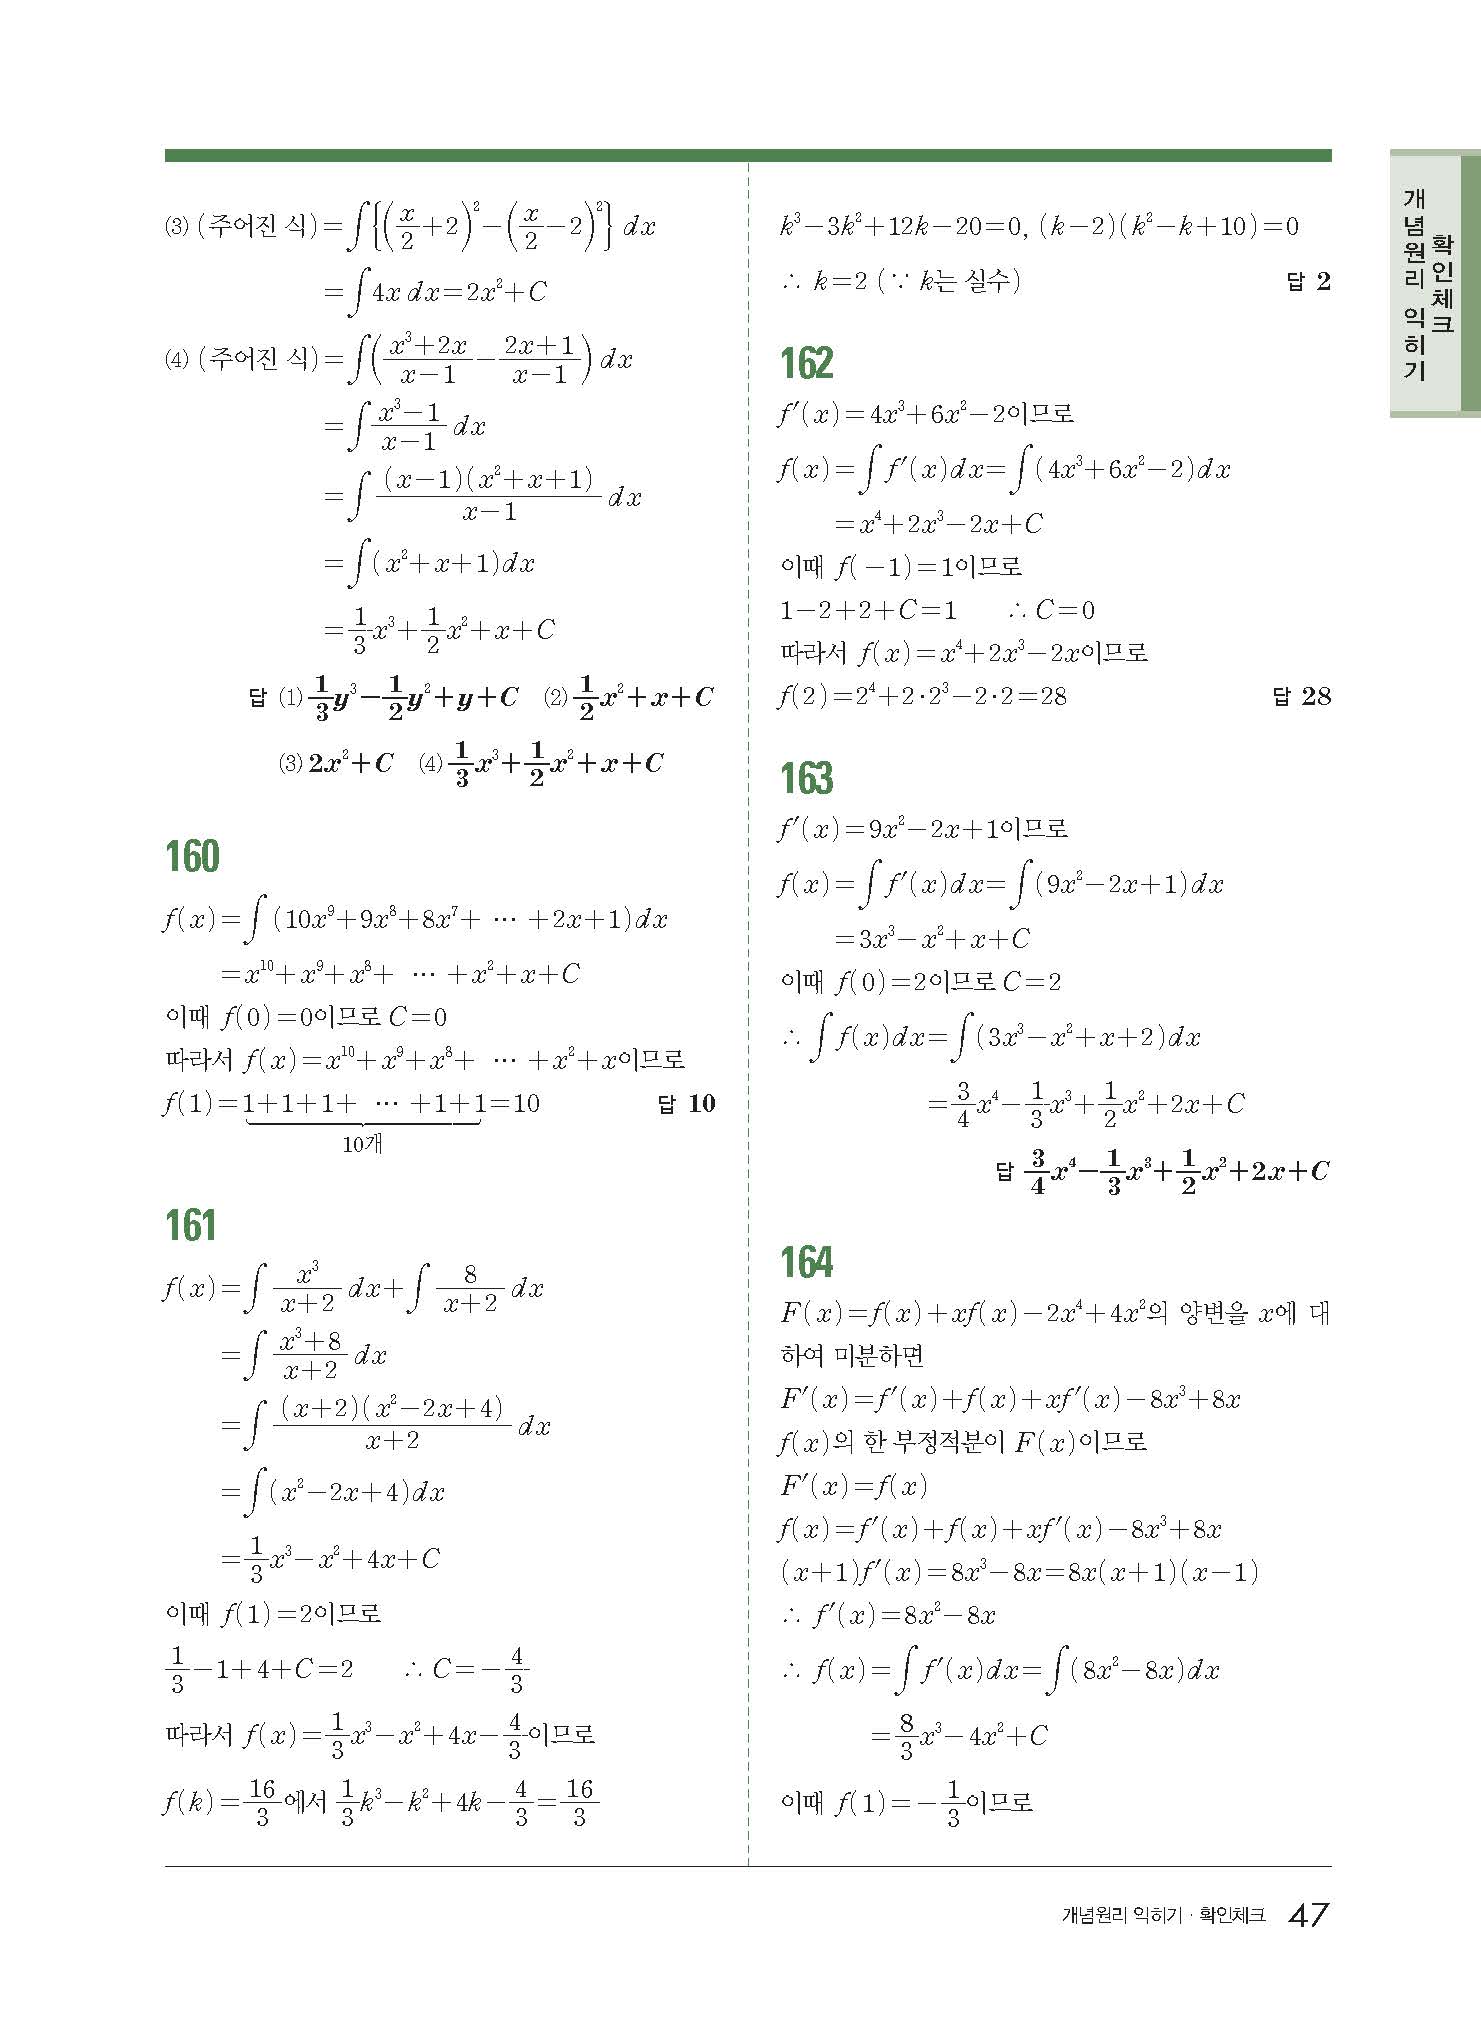 ⑶ (주어진 식)=∫{(x/2+2)²-(x/2-2)²} dx
=∫4x dx=2x²+C
⑷ (주어진 식)=∫((x³+2x)/(x-1)-(2x+1)/(x-1))dx
=∫(x³-1)/(x-1) dx
=∫((x-1)(x²+x+1))/(x-1) dx
=∫(x²+x+1)dx
=1/3 x³+1/2 x²+x+C
답 ⑴ 1/3 y³-1/2 y²+y+C ⑵ 1/2 x²+x+C
⑶ 2x²+C ⑷ 1/3 x³+1/2 x²+x+C
160
f(x)=∫(10x⁹+9x⁸+8x⁷+ … +2x+1)dx
=x¹⁰+x⁹+x⁸+ … +x²+x+C
이때 f(0)=0이므로 C=0
따라서 f(x)=x¹⁰+x⁹+x⁸+ … +x²+x이므로
f(1)=1+1+1+ … +1+1=10 답 10
10개
161
f(x)=∫x³/(x+2) dx+∫8/(x+2) dx
=∫(x³+8)/(x+2) dx
=∫((x+2)(x²-2x+4))/(x+2) dx
=∫(x²-2x+4)dx
=1/3 x³-x²+4x+C
이때 f(1)=2이므로
1/3-1+4+C=2 ∴ C=-4/3
따라서 f(x)=1/3 x³-x²+4x-4/3이므로
f(k)=16/3에서 1/3 k³-k²+4k-4/3=16/3
k³-3k²+12k-20=0, (k-2)(k²-k+10)=0
∴ k=2 (∵ k는 실수) 답 2
162
f′(x)=4x³+6x²-2이므로
f(x)=∫f′(x)dx=∫(4x³+6x²-2)dx
=x⁴+2x³-2x+C
이때 f(-1)=1이므로
1-2+2+C=1 ∴ C=0
따라서 f(x)=x⁴+2x³-2x이므로
f(2)=2⁴+2·2³-2·2=28 답 28
163
f′(x)=9x²-2x+1이므로
f(x)=∫f′(x)dx=∫(9x²-2x+1)dx
=3x³-x²+x+C
이때 f(0)=2이므로 C=2
∴ ∫f(x)dx=∫(3x³-x²+x+2)dx
=3/4 x⁴-1/3 x³+1/2 x²+2x+C
답 3/4 x⁴-1/3 x³+1/2 x²+2x+C
164
F(x)=f(x)+xf(x)-2x⁴+4x²의 양변을 x에 대
하여 미분하면
F′(x)=f′(x)+f(x)+xf′(x)-8x³+8x
f(x)의 한 부정적분이 F(x)이므로
F′(x)=f(x)
f(x)=f′(x)+f(x)+xf′(x)-8x³+8x
(x+1)f′(x)=8x³-8x=8x(x+1)(x-1)
∴ f′(x)=8x²-8x
∴ f(x)=∫f′(x)dx=∫(8x²-8x)dx
=8/3 x³-4x²+C
이때 f(1)=-1/3이므로
개념원리 익히기
확인체크
개념원리 익히기 · 확인체크 47